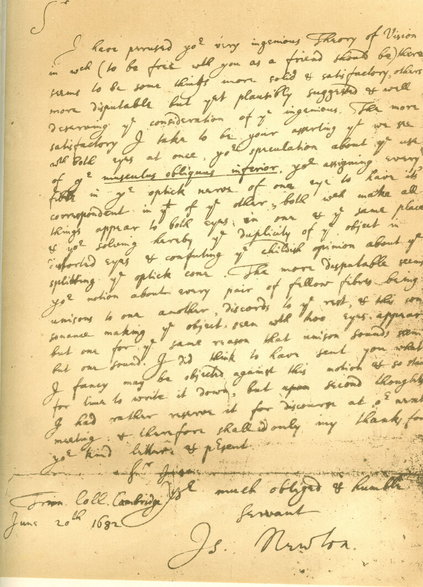 Sr
I have perused yor very ingenious Theory of Vision
in wch (to be free wth you as a friend should be) there
seems to be some things more solid & satisfactory, others
more disputable but yet plausibly suggested & well
deserving ye consideration of ye ingenious. The more
satisfactory I take to be your asserting yt we see
wth both eyes at once, yor speculation about ye use
of ye musculus obliquus inferior, yor assigning every
fibre in ye optick nerve of one eye to have its
correspondent in yt of ye other, both wch make all
things appear to both eyes in one & ye same place
& yor solving hereby ye duplicity of ye object in
distorted eyes & confuting ye childish opinion about ye
splitting ye optick cone. The more disputable seems
yor notion about every pair of fellow fibres being
unisons to one another, discords to ye rest, & this con
sonance making ye object seen with two eyes appear
but one for ye same reason that unison sounds seem
but one sound. I did think to have sent you what
I fancy may be objected against this notion & so
for time to write it down, but upon second thoughts
I had rather reserve it for discourse at or next
meeting: & therefore shall add only my thanks for
yor kind letter & present.
Sr
From Coll. Cambridge Yor much obliged & humble
June 20th 1682 Servant
Is. Newton.